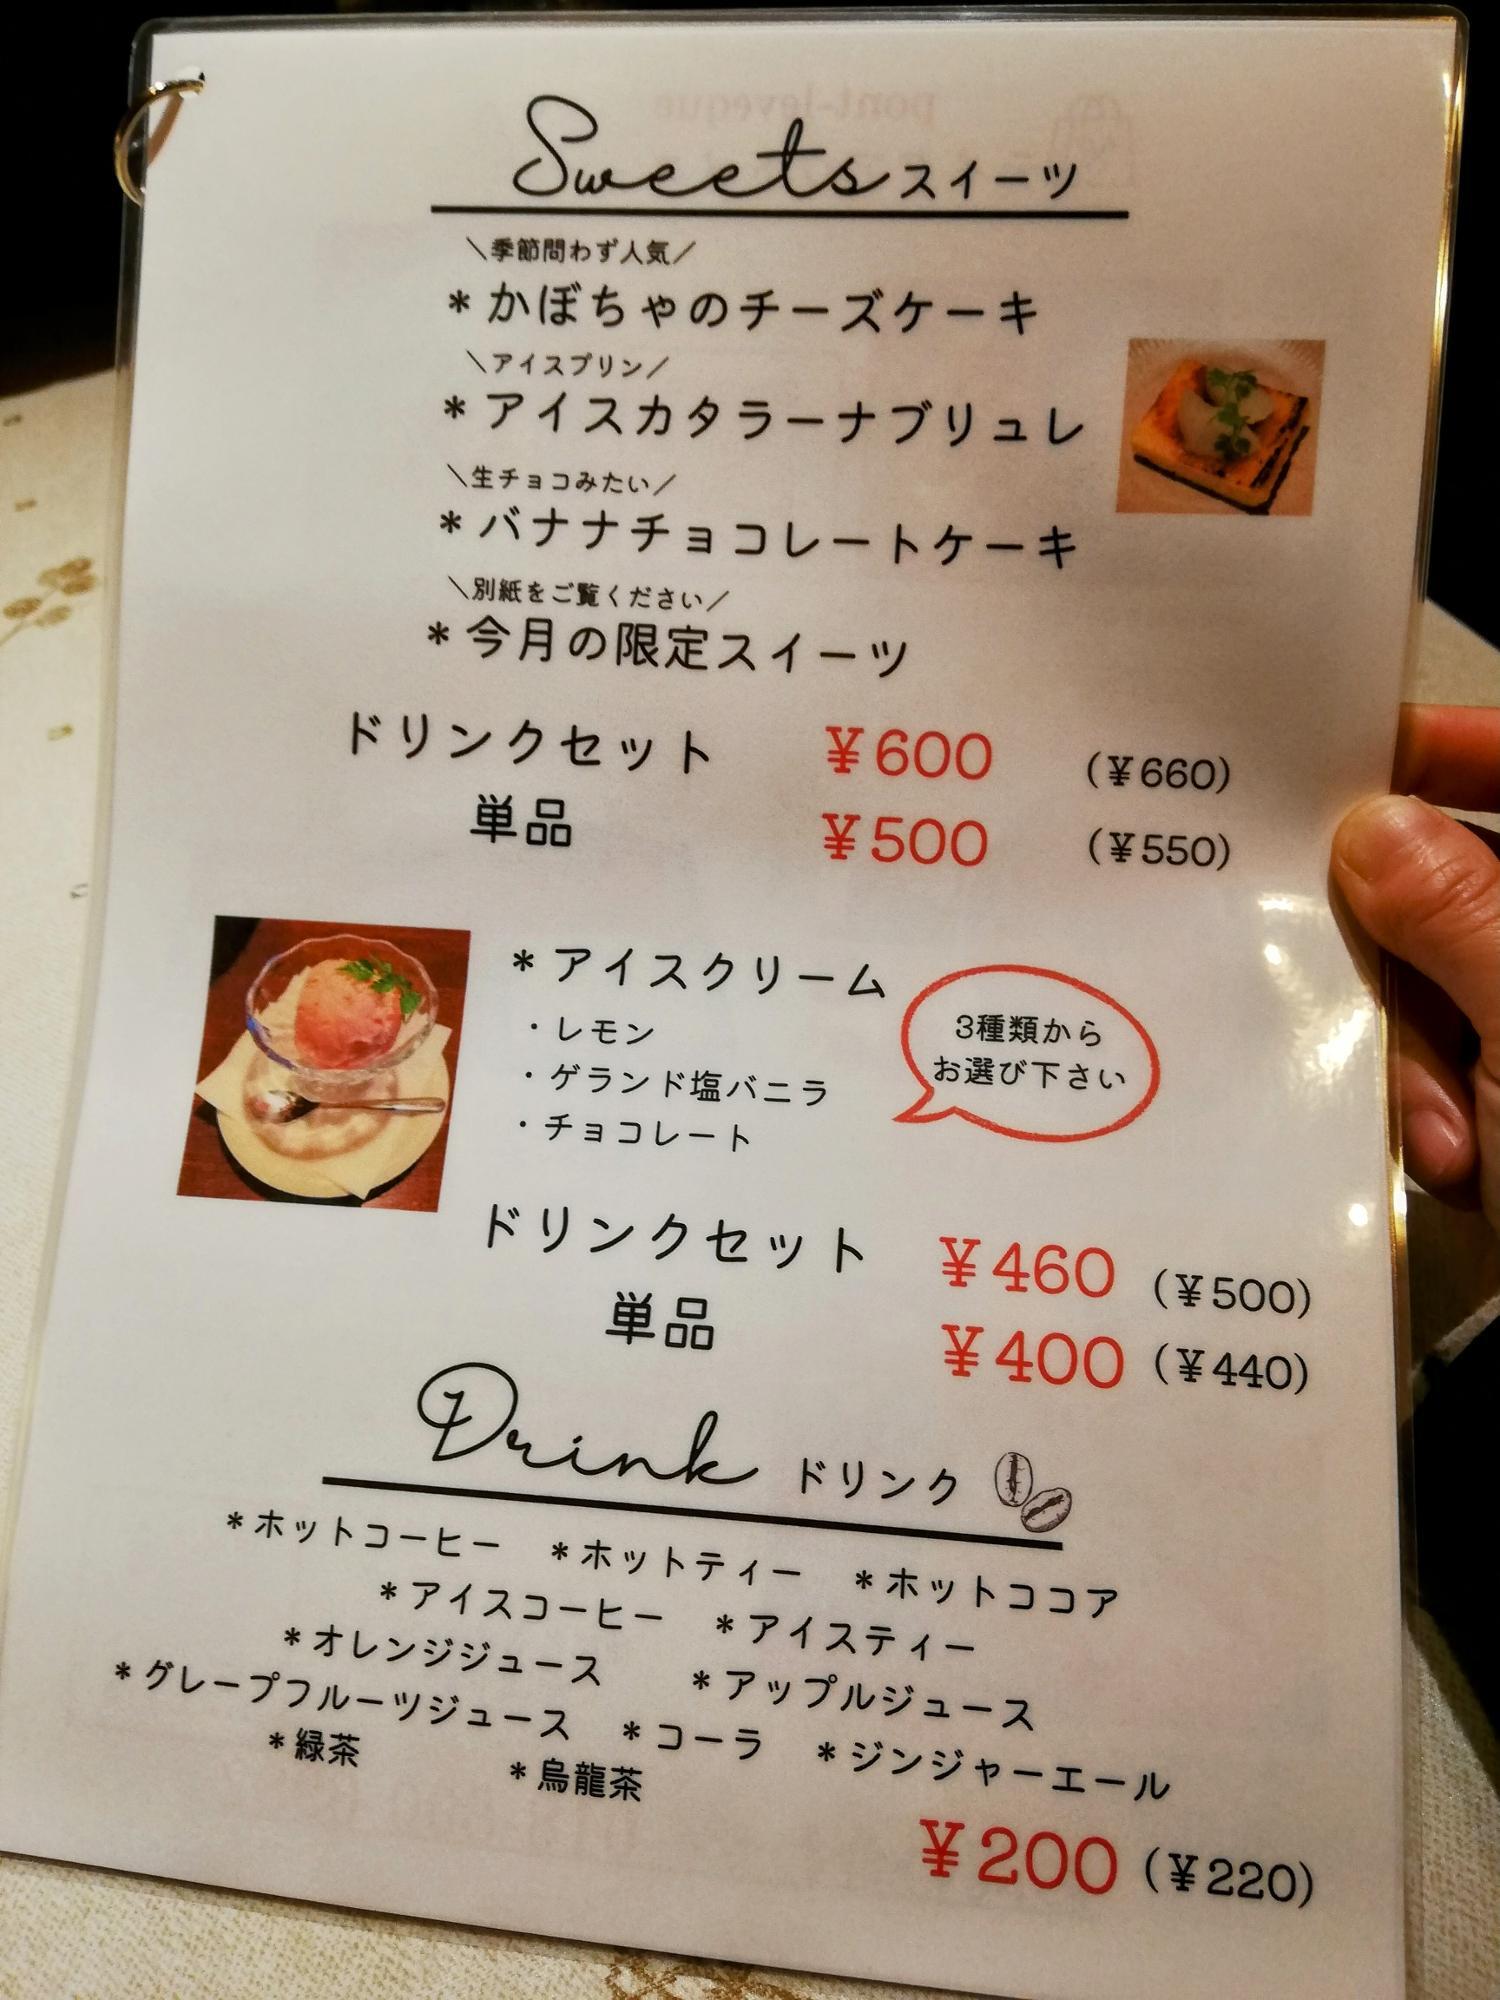 Sweets スイーツ
＼季節問わず人気／
＊かぼちゃのチーズケーキ
＼アイスプリン／
＊アイスカタラーナブリュレ
＼生チョコみたい／
＊バナナチョコレートケーキ
＼別紙をご覧ください／
＊今月の限定スイーツ
ドリンクセット ¥600 (¥660)
単品 ¥500 (¥550)
＊アイスクリーム
・レモン
・ゲランド塩バニラ
・チョコレート
3種類から
お選び下さい
ドリンクセット ¥460 (¥500)
単品 ¥400 (¥440)
Drink ドリンク
＊ホットコーヒー ＊ホットティー ＊ホットココア
＊アイスコーヒー ＊アイスティー
＊オレンジジュース ＊アップルジュース
＊グレープフルーツジュース ＊コーラ ＊ジンジャーエール
＊緑茶 ＊烏龍茶
¥200 (¥220)